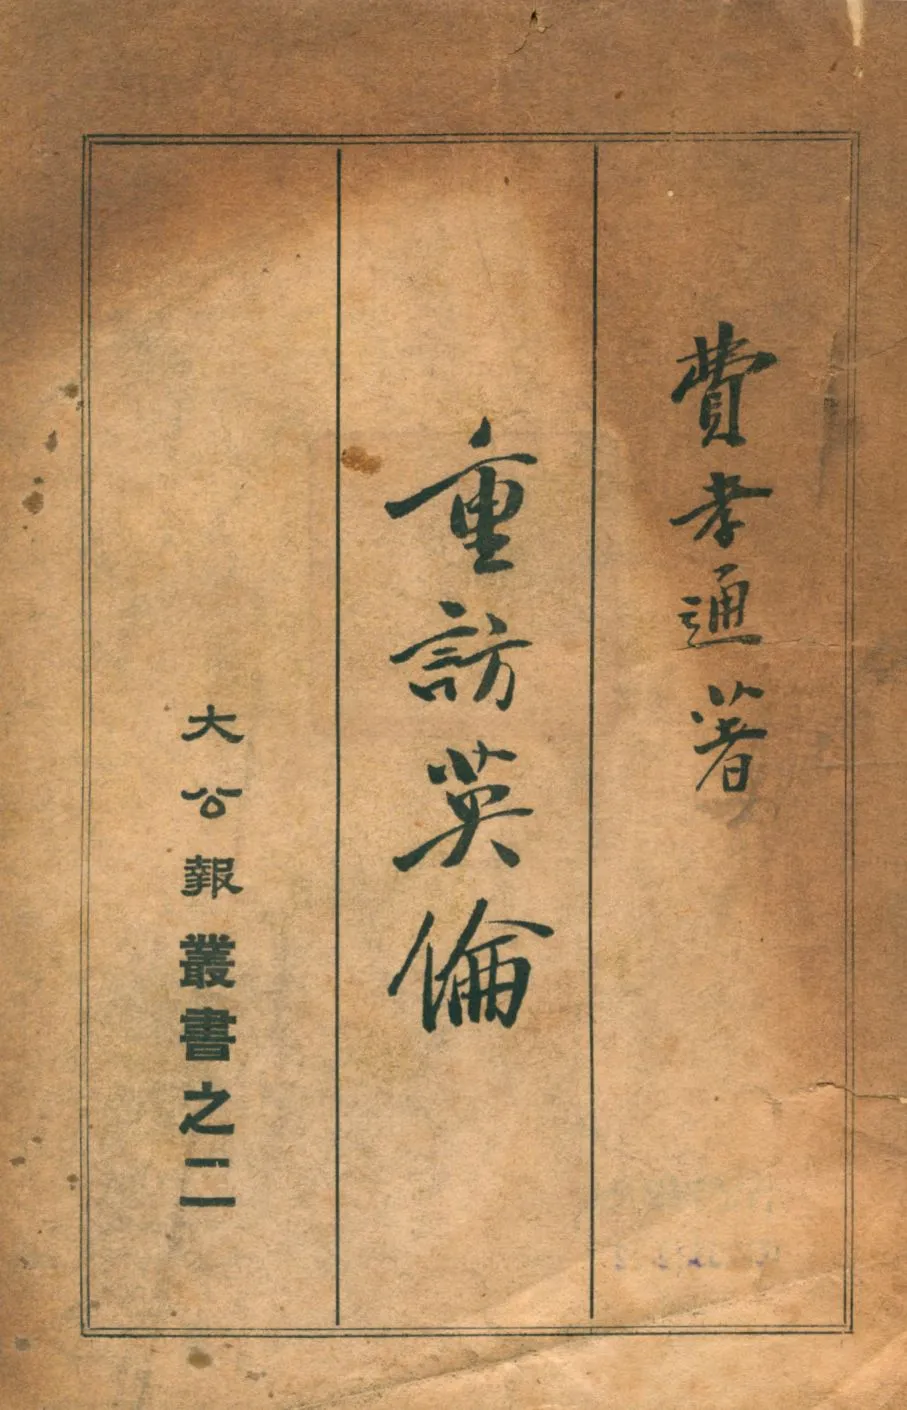 費孝通著
重訪英倫
大公報叢書之二